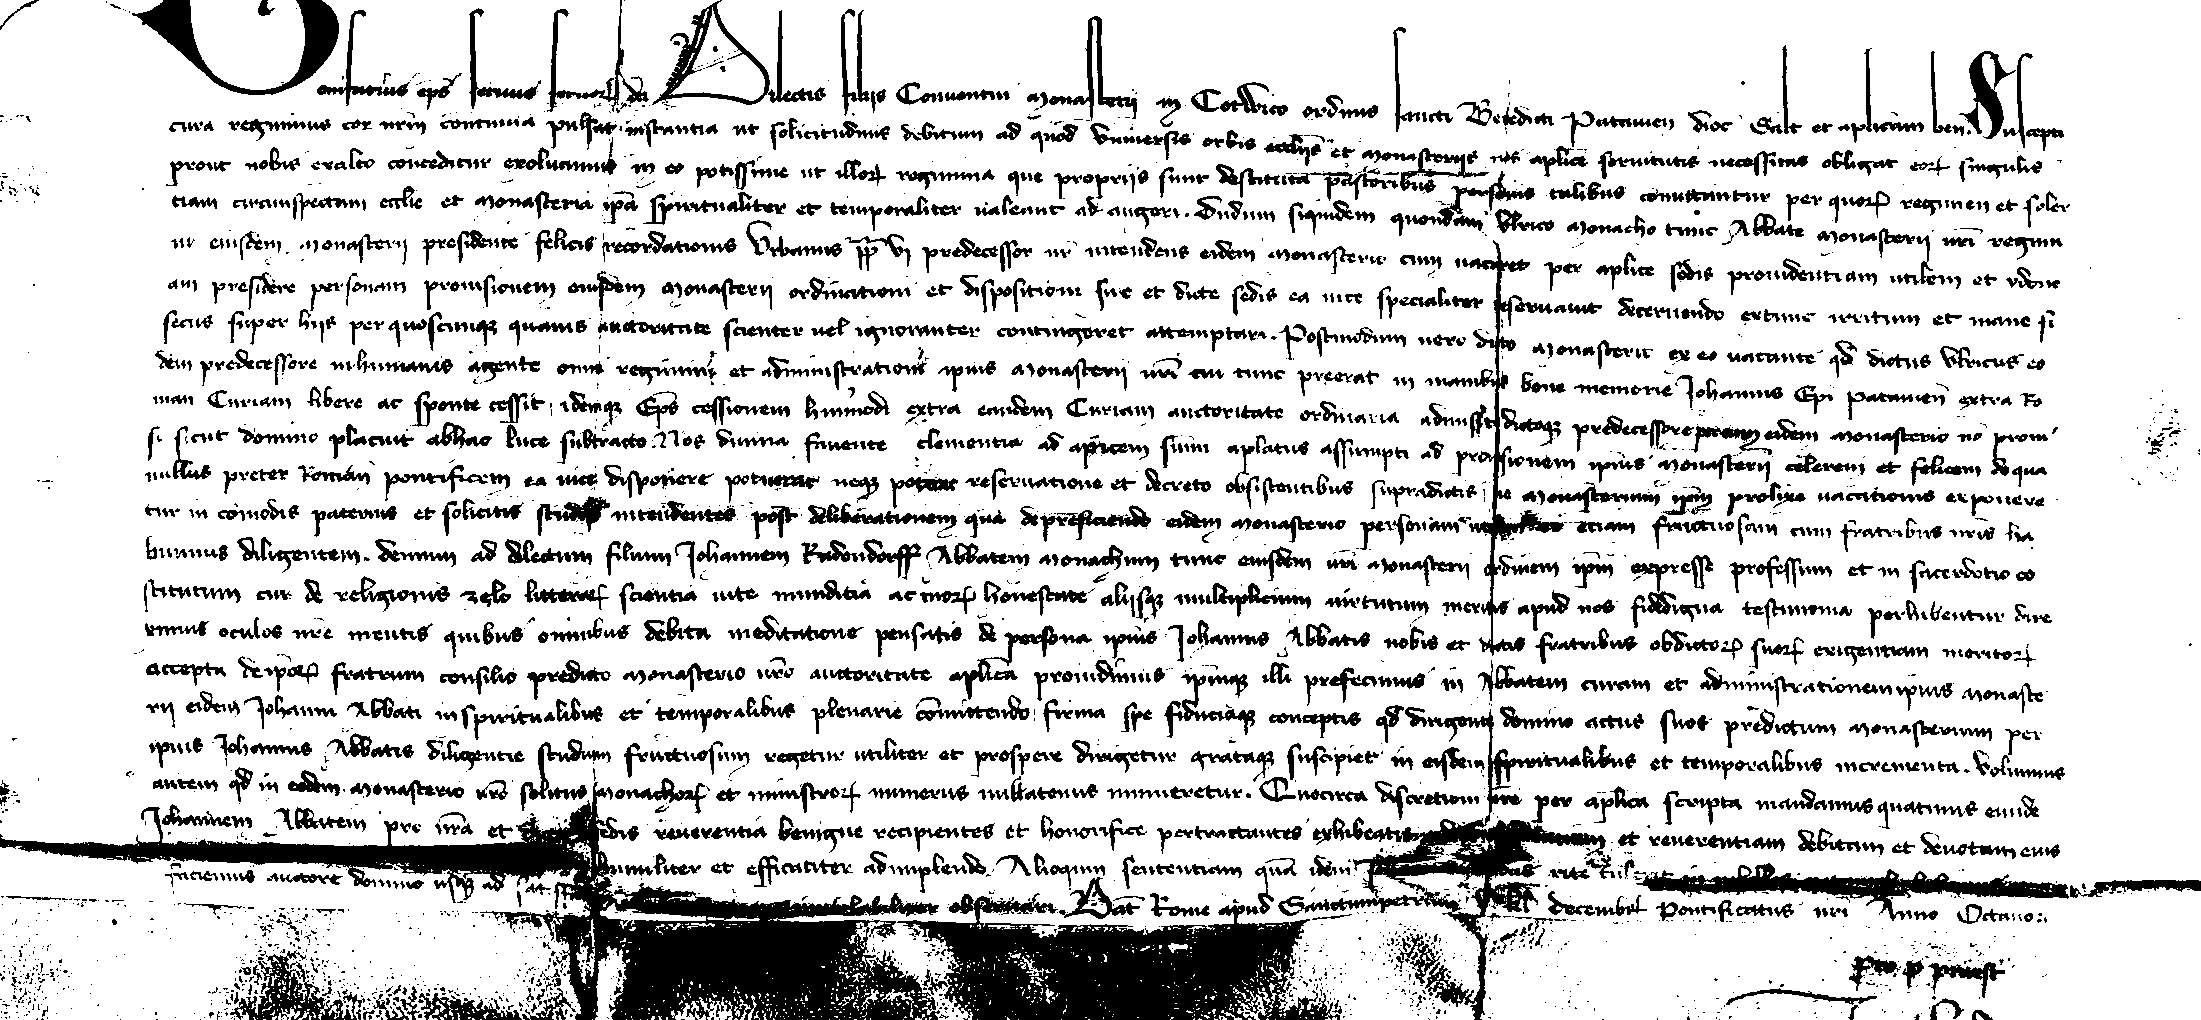 Bonifatius ep̄s servus servorꝝ dei Dilectis filiis Conventui Monasterii in Cotwico ordinis sancti Benedicti Patavien dioc̄ Salt̄ et ap̄licam ben. Suscepti
cura regiminis cor nr̄m continua pulsat instantia ut solicitudinis debitum ad quod universis orbis eccl̄iis et Monasteriis nos ap̄lice servitutis necessitas obligat eorꝝ singulis
prout nobis exalto conceditur exolvamus in eo potissime ut illorꝝ regimina que propriis sunt destituta pastoribus personis talibus com̄ittantur per quorꝝ regimen et soler
tiam circumspectam eccl̄ie et Monasteria ip̄a spiritualiter et temporaliter valeant ad augeri. Dudum siquidem quondam Ulrico Monacho tunc Abbate Monasterii vr̄i regimi
ni eiusdem Monasterii presidente felicis recordationis Urbanus pp̄ VI predecessor nr̄ intendens eidem Monasterio cum vacaret per ap̄lice sedis providentiam utilem et ydone
am presidere personam provisionem eiusdem Monasterii ordinationi et dispositioni sue et dicte sedis ea vice specialiter reservavit decernendo extunc irritum et inane si
secus super hiis per quoscunqꝫ quavis auctoritate scienter vel ignoranter contingeret attemptari. Postmodum vero dicto Monasterio ex eo vacante qd̄ dictus Ulricus eo
dem predecessore in humanis agente om̄i regimini et administrationi ip̄ius Monasterii vr̄i cui tunc preerat in manibus bone memorie Johannis Ep̄i Patavien̄ extra Ro
man Curiam libere ac sponte cessit, idemqꝫ Ep̄s cessionem huiꝰmodi extra eandem Curiam auctoritate ordinaria admisit dictoqꝫ predecessore eidem Monasterio nō provi
si sicut domino placuit ab hac luce subtracto. Nos divina favente clementia ad apicem sum̄i ap̄latus assumpti ad provisionem ip̄ius Monasterii celerem et felicem de qua
nullus preter Roman̄ pontificem ea vice disponere potuerat neqꝫ poterat reservatione et decreto obsistentibus supradictis ne Monasterium ip̄m prolixe vacationis exponere
tur in com̄odis paternis et solicitis studiis intendentes post deliberationem qua de preficiendo eidem Monasterio personam etiam fructuosam cum fratribus nr̄is ha
buimus diligentem. demum ad dilectum filium Johannem Radendorffꝭ Abbatem Monachum tunc eiusdem vr̄i Monasterii ordinem ip̄m expresse professum et in sacerdotio co
stitutum cui de religionis zelo litterarꝝ scientia vite munditia ac morꝝ honestate aliisqꝫ multiplicium virtutum meritis apud nos fidedigna testimonia perhibentur dire
ximus oculos nr̄e mentis quibus om̄ibus debita meditatione pensatis de persona ip̄ius Johannis Abbatis nobis et dictis fratribus ob dictorꝝ suorꝝ exigentiam meritorꝝ
accepta de ip̄orꝝ fratrum consilio predicto Monasterio vr̄o auctoritate ap̄lica providimus ip̄umqꝫ illi prefecimus in Abbatem curam et administrationem ip̄ius Monaste
rii eidem Johanni Abbati in spiritualibus et temporalibus plenarie com̄ittendo firma spe fiduciaqꝫ conceptis qd̄ dirigente domino actus suos predictum Monasterium per
ip̄ius Johannis Abbatis diligentie studium fructuosum regetur utiliter et prospere dirigetur grataqꝫ suscipiet in eisdem spiritualibus et temporalibus incrementa. Volumus
autem qd̄ in eodem Monasterio vr̄o solitus Monachorꝝ et ministrorꝝ numerus nullatenus minueretur. Quocirca discretioni vr̄e per ap̄lica scripta mandamus quatinus eunde
Johannem Abbatem pro nr̄a et sedis reverentia benigne recipientes et honorifice pertractantes exhibeatis et reverentiam debitam et devotam eius
humiliter et efficaciter adimplendo. Alioquin sententiam quā idem rite tul
faciemus auctore domino usqꝫ ad sat inviolabiliter observari. Dat̄ Rome apud Sanctumpetrum decembr̄ Pontificatus nr̄i Anno Octavo.